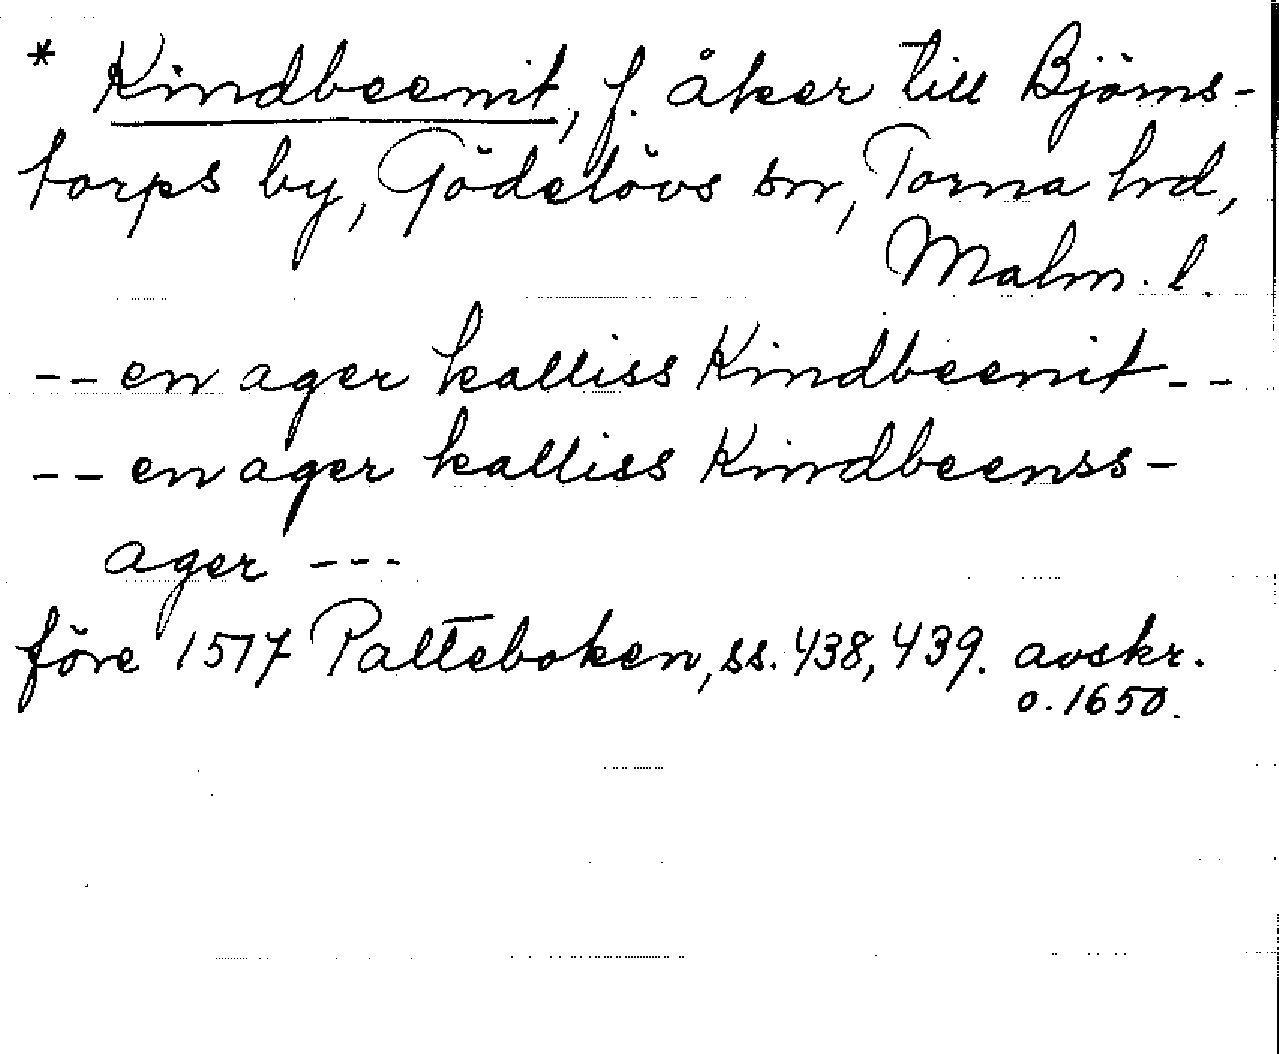 * Kindbeenit, f. åker till Björns-
torps by, Gödelövs sn, Torna hrd,
Malm. l.
-- en ager kalliss Kindbeenit --
-- en ager kalliss Kindbeenss-
ager ---
före 1517 Palteboken, ss. 438, 439. avskr.
o. 1650.